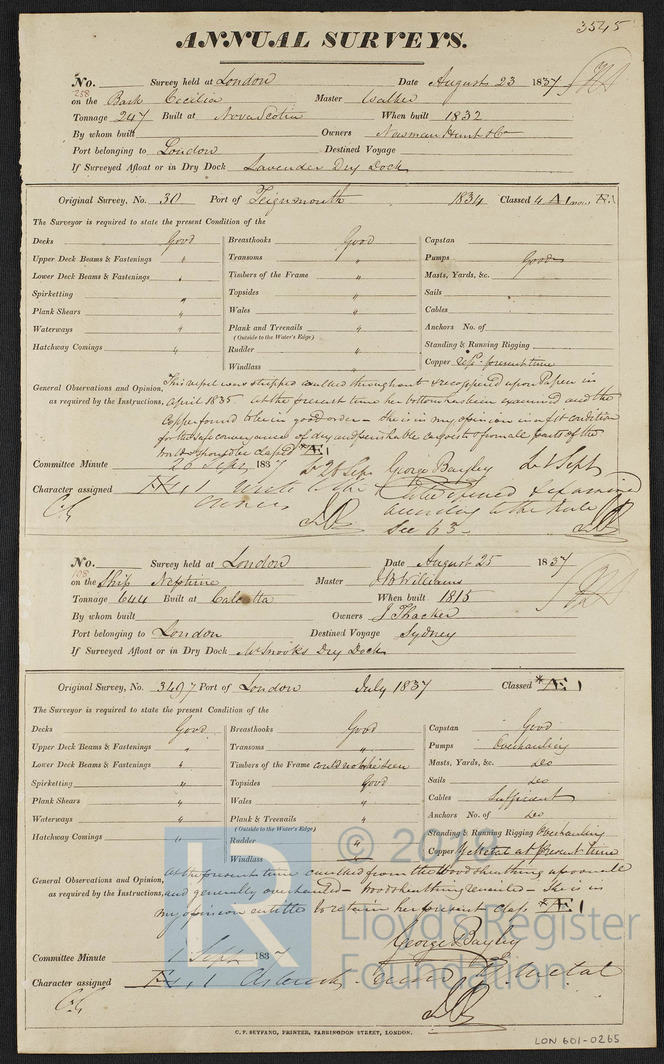 3545
ANNUAL SURVEYS.
No. Survey held at London Date August 23 1837
258
on the Bark Cecilia Master Walker
Tonnage 247 Built at Nova Scotia When built 1832
By whom built Owners Newman Hunt & Co
Port belonging to London Destined Voyage
If Surveyed Afloat or in Dry Dock Lavender Dry Dock
Original Survey, No. 30 Port of Teignmouth 1834 Classed 4 A 1
The Surveyor is required to state the present Condition of the
Decks Good Breasthooks Good Capstan
Upper Deck Beams & Fastenings " Transoms " Pumps Good
Lower Deck Beams & Fastenings " Timbers of the Frame " Masts, Yards, &c.
Spirketting " Topsides " Sails
Plank Shears " Wales " Cables
Waterways " Plank and Treenails " Anchors No. of
(Outside to the Water's Edge)
Hatchway Comings " Rudder " Standing & Running Rigging
Windlass " Copper present time
General Observations and Opinion, This vessel was stripped caulked throughout & recoppered upon Paper in
as required by the Instructions, April 1835 at the present time her bottom has been examined and the
Copper found to be in good order - she is in my opinion in a fit condition
for the safe conveyance of dry and perishable cargoes to & from all parts of the
world & should be classed *Æ 1
Committee Minute 26 Sept 1837 George Bayley Sept
Character assigned Æ 1 write to the to be opened & examined
owners according to the Rule
See 63
No. Survey held at London Date August 25 1837
108
on the Ship Neptune Master J B Williams
Tonnage 644 Built at Calcutta When built 1815
By whom built Owners J Thacker
Port belonging to London Destined Voyage Sydney
If Surveyed Afloat or in Dry Dock Mr Snooks Dry Dock
Original Survey, No. 3497 Port of London July 1837 Classed *Æ 1
The Surveyor is required to state the present Condition of the
Decks Good Breasthooks Good Capstan Good
Upper Deck Beams & Fastenings " Transoms " Pumps Overhauling
Lower Deck Beams & Fastenings " Timbers of the Frame could not be seen Masts, Yards, &c. do
Spirketting " Topsides Good Sails do
Plank Shears " Wales " Cables Sufficient
Waterways " Plank & Treenails " Anchors No. of do
(Outside to the Water's Edge)
Hatchway Comings " Rudder " Standing & Running Rigging Overhauling
Windlass " Copper Y Metal at present time
General Observations and Opinion, At the present time caulked from the wood sheathing upwards
as required by the Instructions, and generally overhauled - Wood sheathing - She is in
my opinion entitled to retain her present class *Æ 1
George Bayley
Committee Minute 1 Sept 1837
Character assigned Æ 1 Y. Metal
C. F. SEYFANG, PRINTER, FARRINGDON STREET, LONDON.
LON 601-0265
LR
Lloyd's Register
Foundation